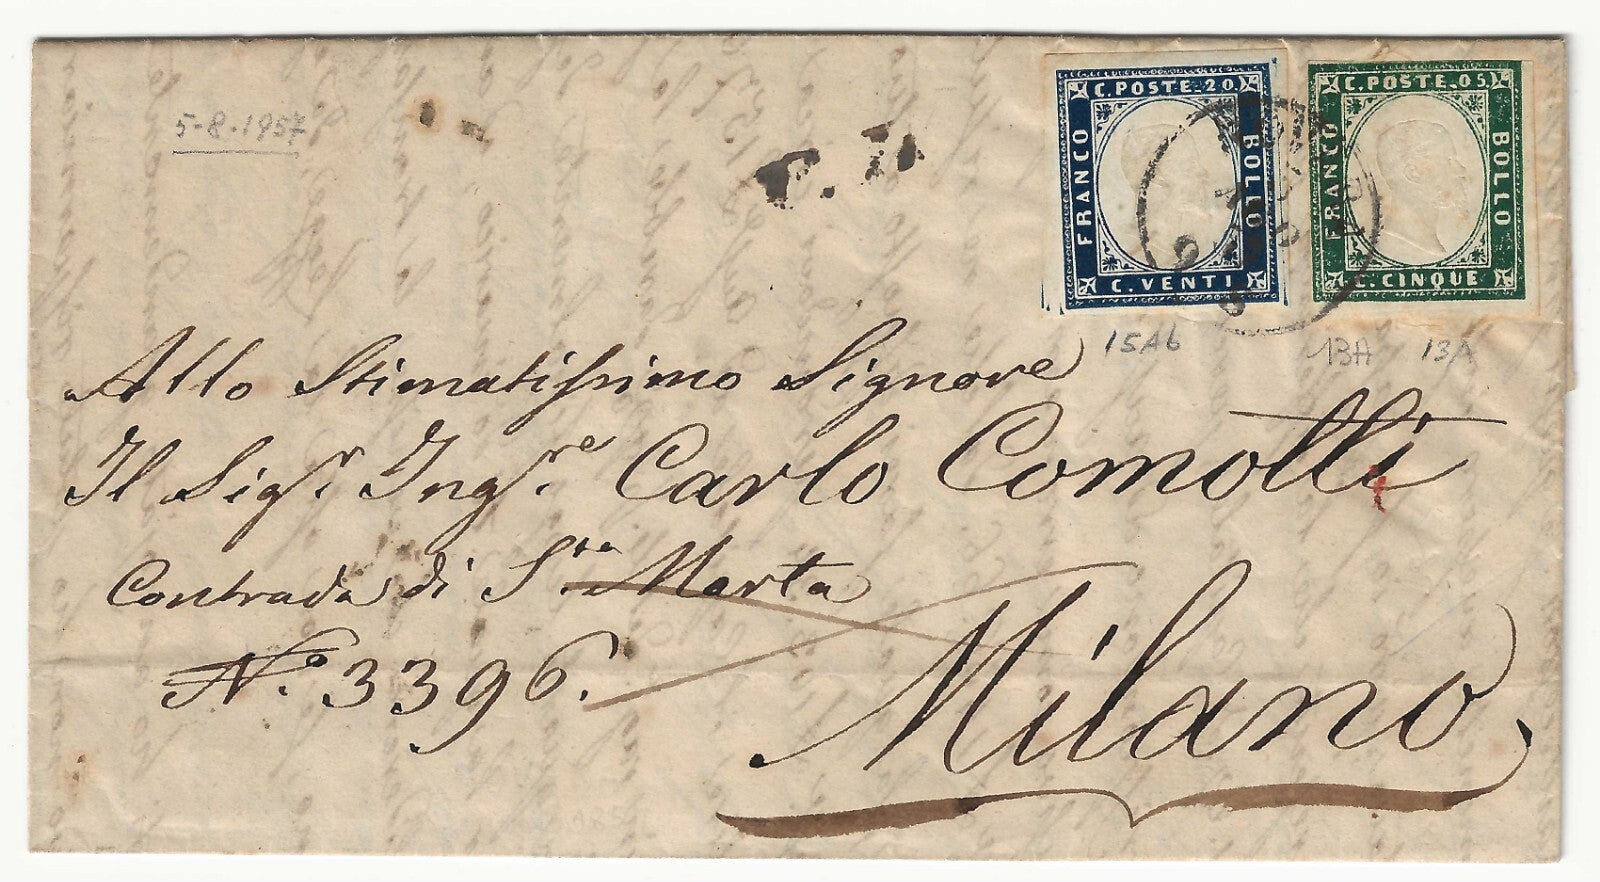 5-8-1957
P. D
C. POSTE. 20.
FRANCO
BOLLO
C. VENTI
C. POSTE. 05.
FRANCO
BOLLO
C. CINQUE
15Ab
13A 13A
Allo Stimatissimo Signore
Il Sigr. Ingre. Carlo Comolli
Contrada di Sta. Marta
No. 3396.
Milano